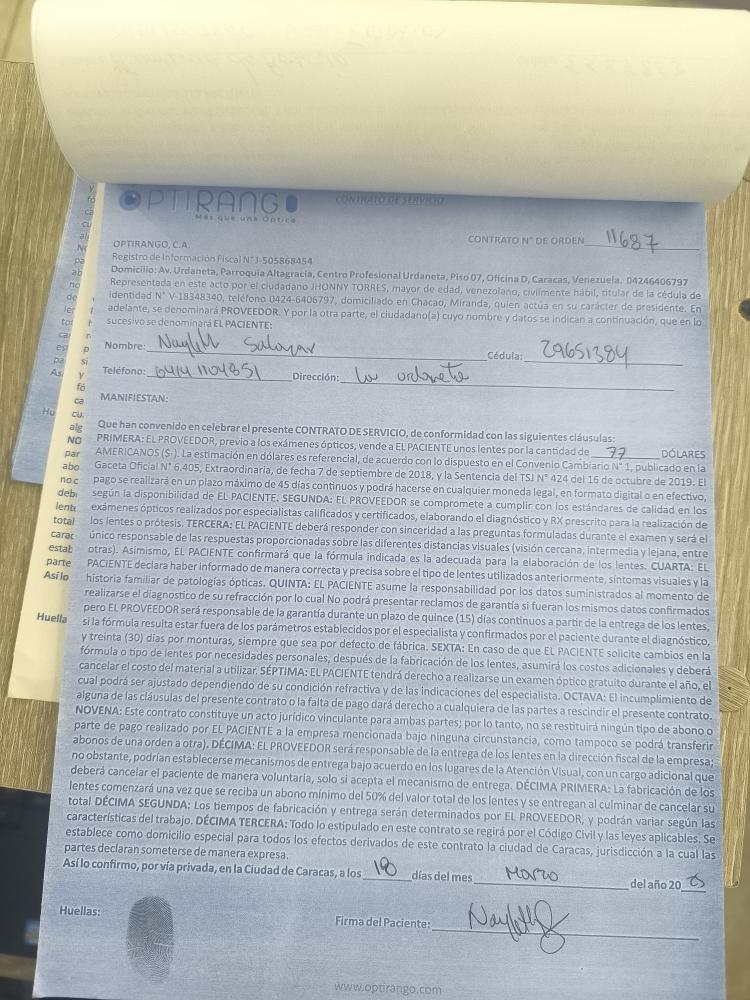 OPTIRANGO
Más que una Óptica
CONTRATO DE SERVICIO
CONTRATO N° DE ORDEN 11687
OPTIRANGO, C.A.
Registro de Información Fiscal N° J-505868454
Domicilio: Av. Urdaneta, Parroquia Altagracia, Centro Profesional Urdaneta, Piso 07, Oficina D, Caracas, Venezuela. 04246406797
Representada en este acto por el ciudadano JHONNY TORRES, mayor de edad, venezolano, civilmente hábil, titular de la cédula de
identidad N° V-18348340, teléfono 0424-6406797, domiciliado en Chacao, Miranda, quien actúa en su carácter de presidente. En
adelante, se denominará PROVEEDOR. Y por la otra parte, el ciudadano(a) cuyo nombre y datos se indican a continuación, que en lo
sucesivo se denominará EL PACIENTE:
Nombre: Nayleth Salazar Cédula: 29651384
Teléfono: 0414 1104851 Dirección: La urdaneta
MANIFIESTAN:
Que han convenido en celebrar el presente CONTRATO DE SERVICIO, de conformidad con las siguientes cláusulas:
PRIMERA: EL PROVEEDOR, previo a los exámenes ópticos, vende a EL PACIENTE unos lentes por la cantidad de 77 DÓLARES
AMERICANOS ($-). La estimación en dólares es referencial, de acuerdo con lo dispuesto en el Convenio Cambiario N° 1, publicado en la
Gaceta Oficial N° 6.405, Extraordinaria, de fecha 7 de septiembre de 2018, y la Sentencia del TSJ N° 424 del 16 de octubre de 2019. El
pago se realizará en un plazo máximo de 45 días continuos y podrá hacerse en cualquier moneda legal, en formato digital o en efectivo,
según la disponibilidad de EL PACIENTE. SEGUNDA: EL PROVEEDOR se compromete a cumplir con los estándares de calidad en los
exámenes ópticos realizados por especialistas calificados y certificados, elaborando el diagnóstico y RX prescrito para la realización de
los lentes o prótesis. TERCERA: EL PACIENTE deberá responder con sinceridad a las preguntas formuladas durante el examen y será el
único responsable de las respuestas proporcionadas sobre las diferentes distancias visuales (visión cercana, intermedia y lejana, entre
otras). Asimismo, EL PACIENTE confirmará que la fórmula indicada es la adecuada para la elaboración de los lentes. CUARTA: EL
PACIENTE declara haber informado de manera correcta y precisa sobre el tipo de lentes utilizados anteriormente, síntomas visuales y la
historia familiar de patologías ópticas. QUINTA: EL PACIENTE asume la responsabilidad por los datos suministrados al momento de
realizarse el diagnostico de su refracción por lo cual No podrá presentar reclamos de garantía si fueran los mismos datos confirmados
pero EL PROVEEDOR será responsable de la garantía durante un plazo de quince (15) días continuos a partir de la entrega de los lentes,
si la fórmula resulta estar fuera de los parámetros establecidos por el especialista y confirmados por el paciente durante el diagnóstico,
y treinta (30) días por monturas, siempre que sea por defecto de fábrica. SEXTA: En caso de que EL PACIENTE solicite cambios en la
fórmula o tipo de lentes por necesidades personales, después de la fabricación de los lentes, asumirá los costos adicionales y deberá
cancelar el costo del material a utilizar. SÉPTIMA: EL PACIENTE tendrá derecho a realizarse un examen óptico gratuito durante el año, el
cual podrá ser ajustado dependiendo de su condición refractiva y de las indicaciones del especialista. OCTAVA: El incumplimiento de
alguna de las cláusulas del presente contrato o la falta de pago dará derecho a cualquiera de las partes a rescindir el presente contrato.
NOVENA: Este contrato constituye un acto jurídico vinculante para ambas partes; por lo tanto, no se restituirá ningún tipo de abono o
parte de pago realizado por EL PACIENTE a la empresa mencionada bajo ninguna circunstancia, como tampoco se podrá transferir
abonos de una orden a otra). DÉCIMA: EL PROVEEDOR será responsable de la entrega de los lentes en la dirección fiscal de la empresa;
no obstante, podrían establecerse mecanismos de entrega bajo acuerdo en los lugares de la Atención Visual, con un cargo adicional que
deberá cancelar el paciente de manera voluntaria, solo si acepta el mecanismo de entrega. DÉCIMA PRIMERA: La fabricación de los
lentes comenzará una vez que se reciba un abono mínimo del 50% del valor total de los lentes y se entregan al culminar de cancelar su
total DÉCIMA SEGUNDA: Los tiempos de fabricación y entrega serán determinados por EL PROVEEDOR, y podrán variar según las
características del trabajo. DÉCIMA TERCERA: Todo lo estipulado en este contrato se regirá por el Código Civil y las leyes aplicables. Se
establece como domicilio especial para todos los efectos derivados de este contrato la ciudad de Caracas, jurisdicción a la cual las
partes declaran someterse de manera expresa.
Así lo confirmo, por vía privada, en la Ciudad de Caracas, a los 18 días del mes Marzo del año 20 25
Huellas:
Firma del Paciente: Nayleth
www.optirango.com